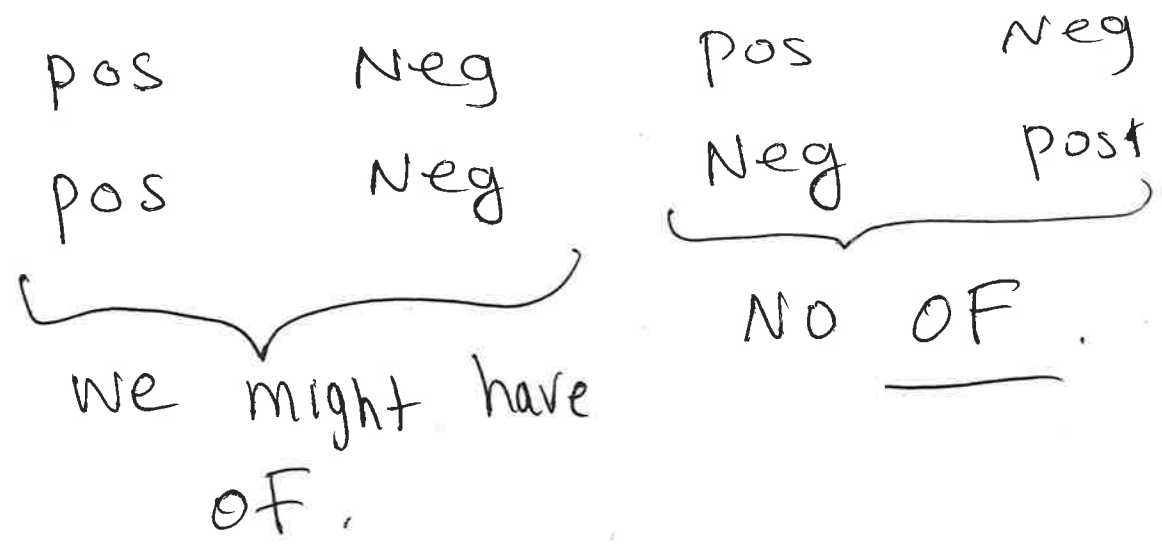 pos Neg
pos Neg
we might have
OF.
pos Neg
Neg post
NO OF.